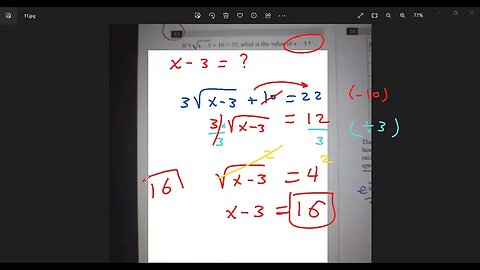 11.jpg
77%
If 3√x-3 + 10 = 22, what is the value of x - 3 ?
x - 3 = ?
3√x-3 + 10 = 22 (-10)
3/3 √x-3 = 12/3 (÷3)
√x-3² = 4²
16 x - 3 = 16